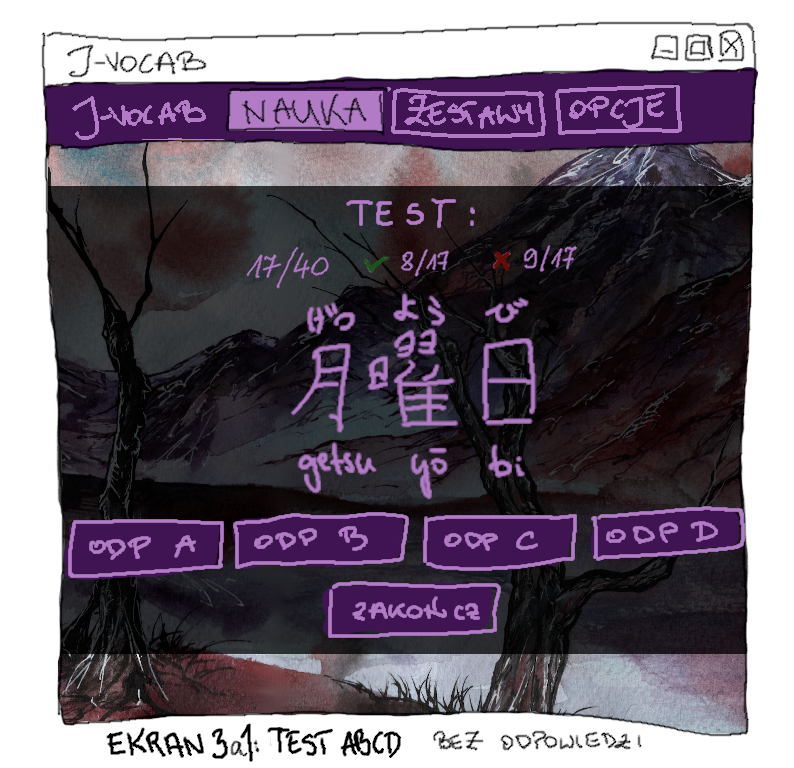 J-VOCAB
J-VOCAB NAUKA ZESTAWY OPCJE
TEST:
17/40 ✓ 8/17 ✗ 9/17
げつ よう び
月 曜 日
getsu yō bi
ODP A ODP B ODP C ODP D
ZAKOŃCZ
EKRAN 3a1: TEST ABCD BEZ ODPOWIEDZI